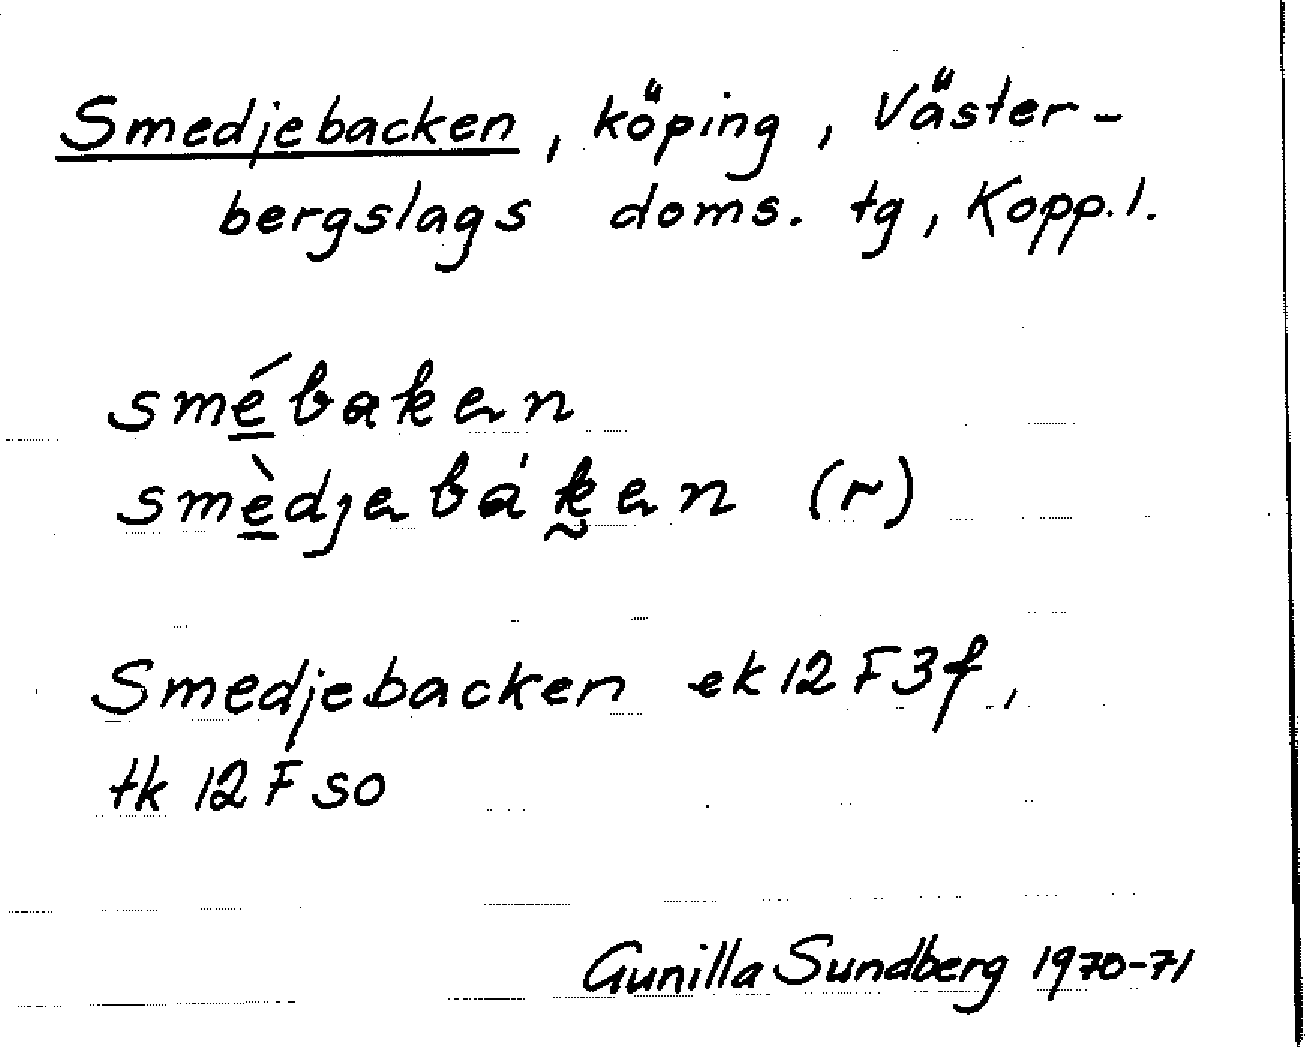 Smedjebacken, köping, Väster-
bergslags doms. tg, Kopp.l.
smé̲baken
smè̲djebák̰en (r)
Smedjebacken ek 12 F 3f,
tk 12 F SO
Gunilla Sundberg 1970-71